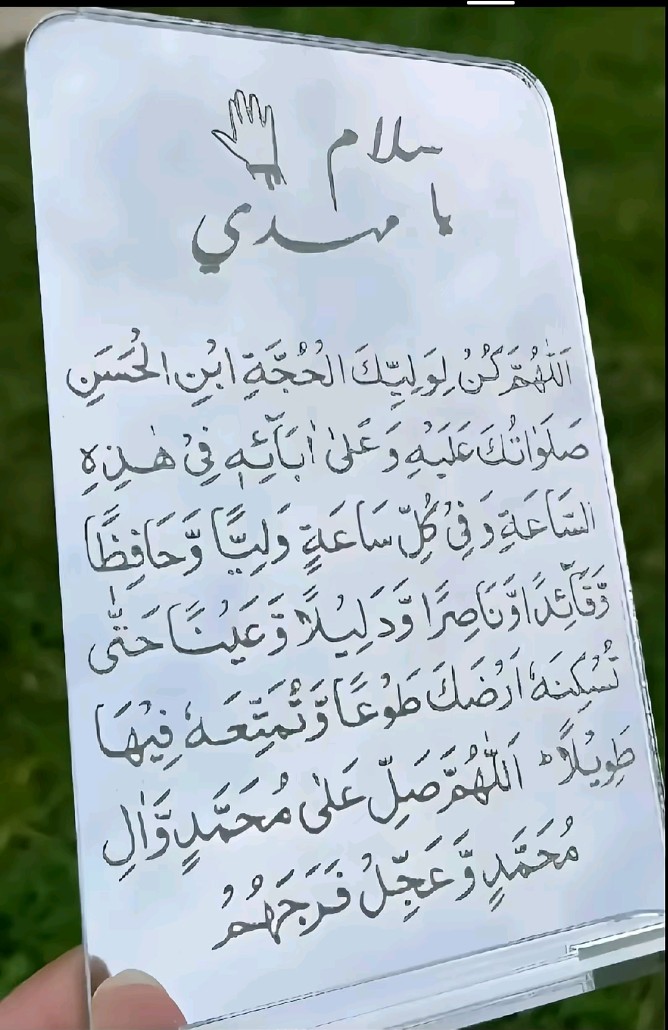 سلام
يا مهدي
اَللّٰهُمَّ كُنْ لِوَلِيِّكَ الْحُجَّةِ ابْنِ الْحَسَنِ
صَلَوَاتُكَ عَلَيْهِ وَعَلٰى اٰبَآئِهٖ فِيْ هٰذِهِ
السَّاعَةِ وَفِيْ كُلِّ سَاعَةٍ وَلِيًّا وَّحَافِظًا
وَّقَآئِدًا وَّنَاصِرًا وَّدَلِيْلًا وَّعَيْنًا حَتّٰى
تُسْكِنَهٗ اَرْضَكَ طَوْعًا وَّتُمَتِّعَهٗ فِيْهَا
طَوِيْلًا ؕ اَللّٰهُمَّ صَلِّ عَلٰى مُحَمَّدٍ وَّاٰلِ
مُحَمَّدٍ وَّعَجِّلْ فَرَجَهُمْ